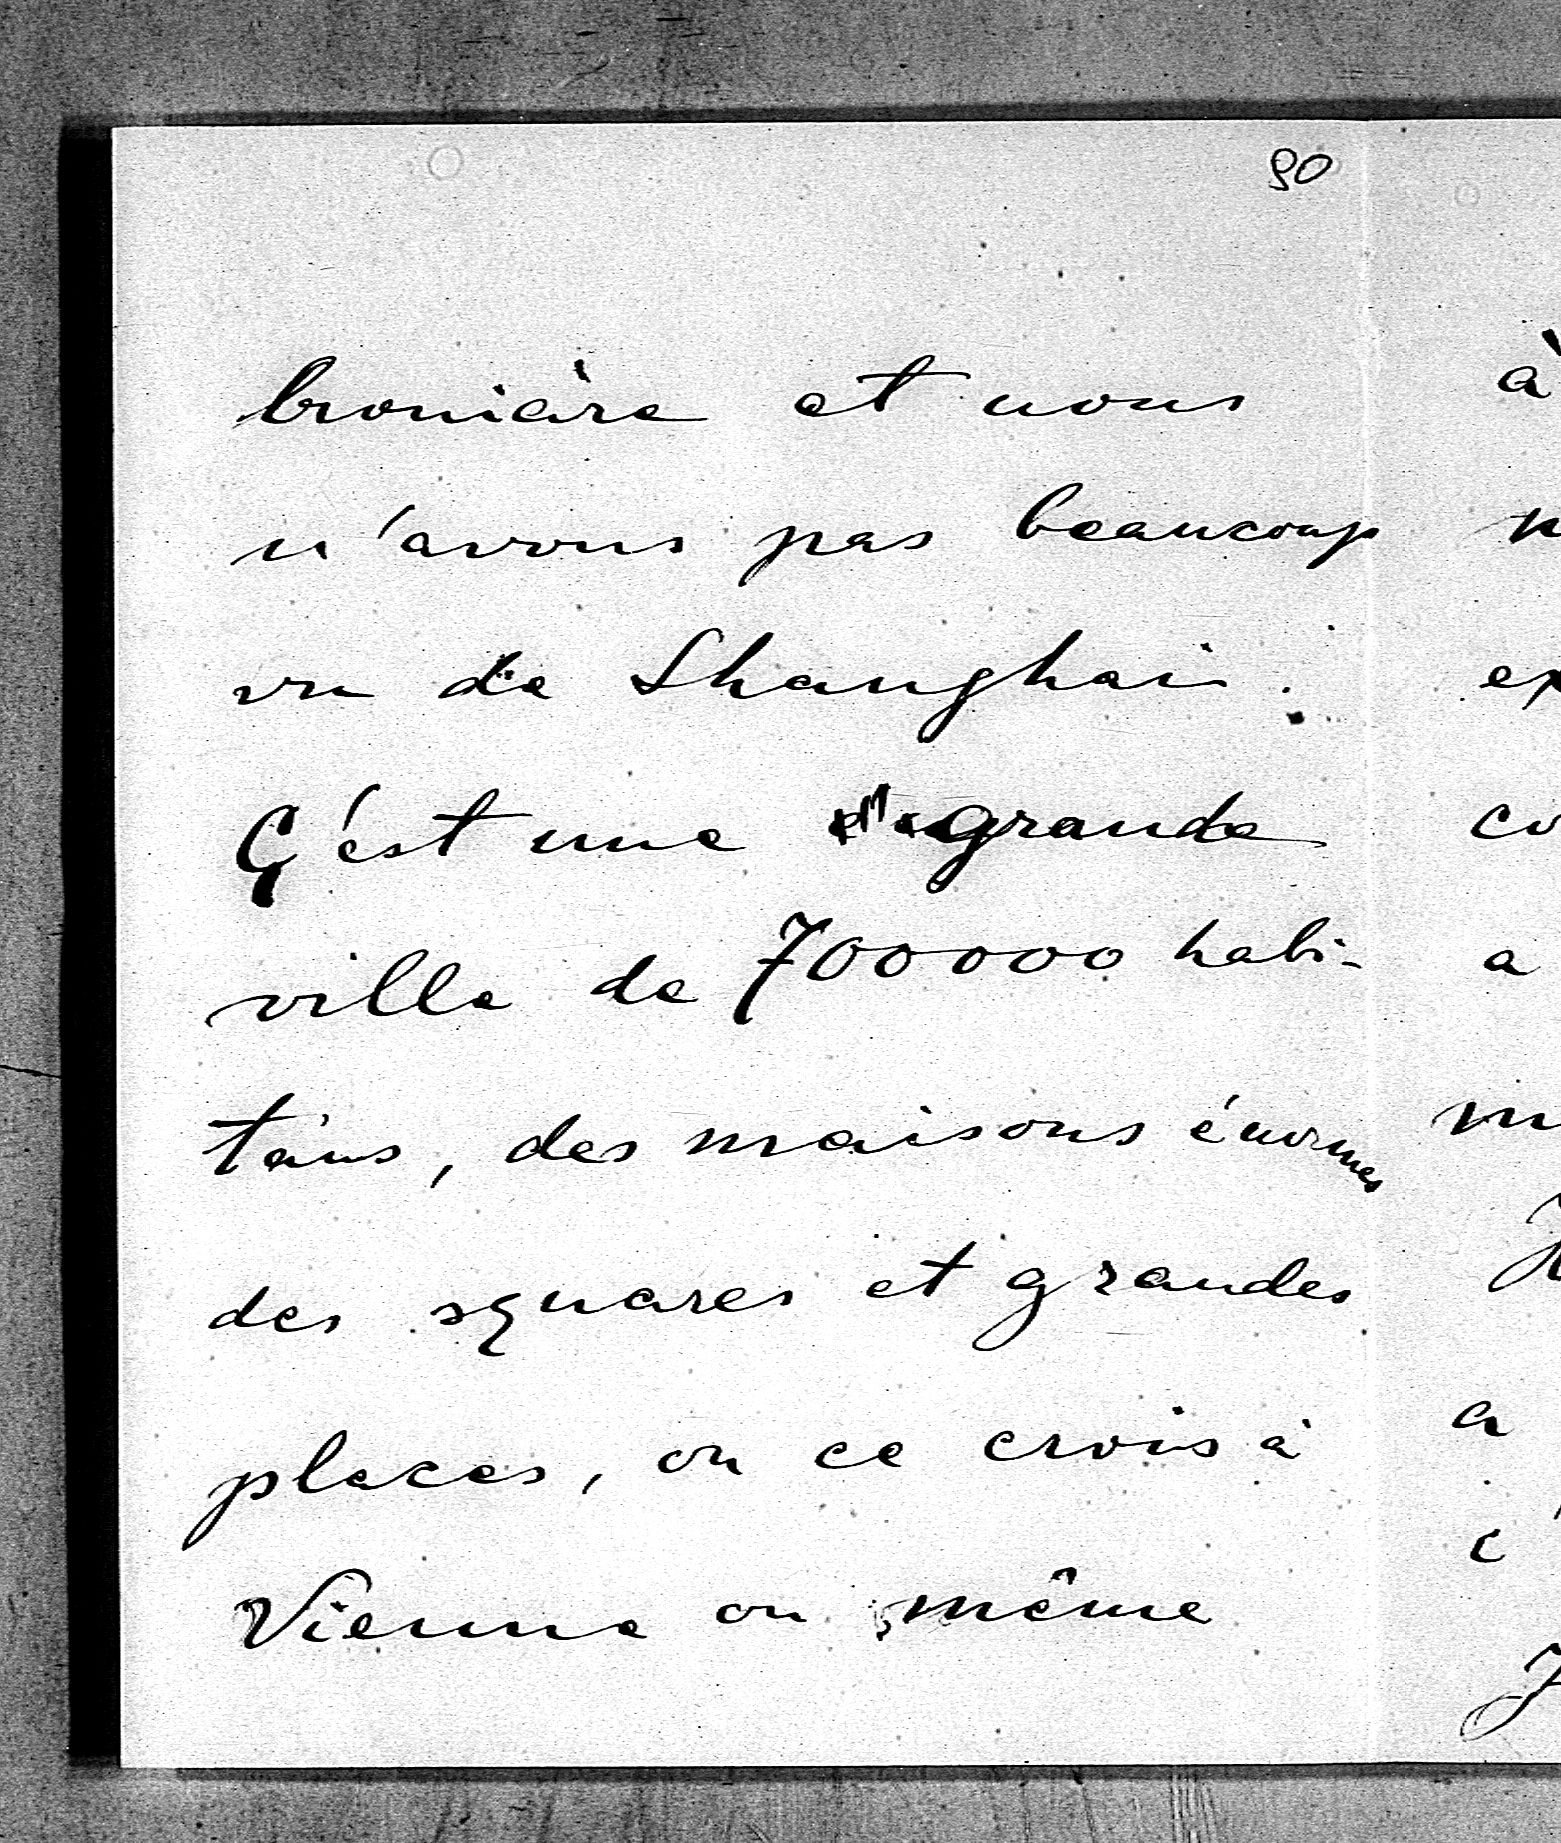 90
bronière et nous
n'avons pas beaucoup
vu de Shanghai.
C'est une grande
ville de 700000 habi-
tans, des maisons énormes
des squares et grandes
places, on ce crois à
Vienne ou même
à
n
ex
co
a
m
a
c'